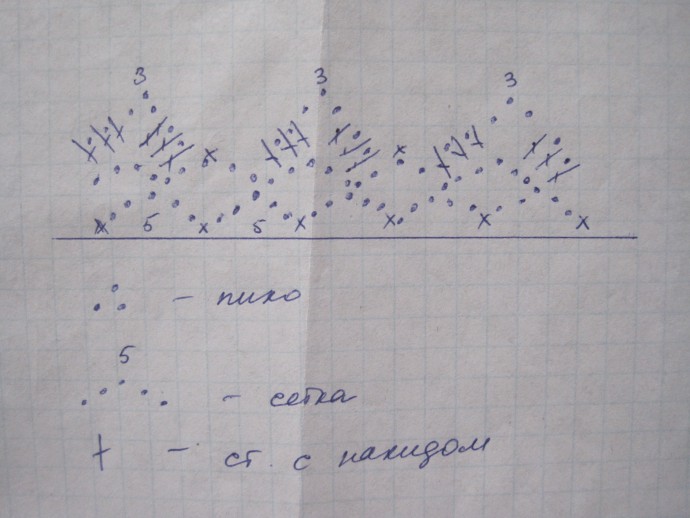 3 3 3
5 5
- пико
5
- сетка
- ст. с накидом